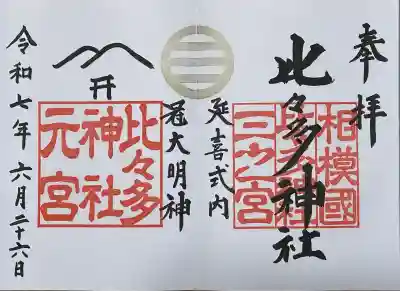 奉拝
相模國
比々多神社
三之宮
比々多神社
延喜式内
冠大明神
比々多
神社
元宮
令和七年六月二十六日